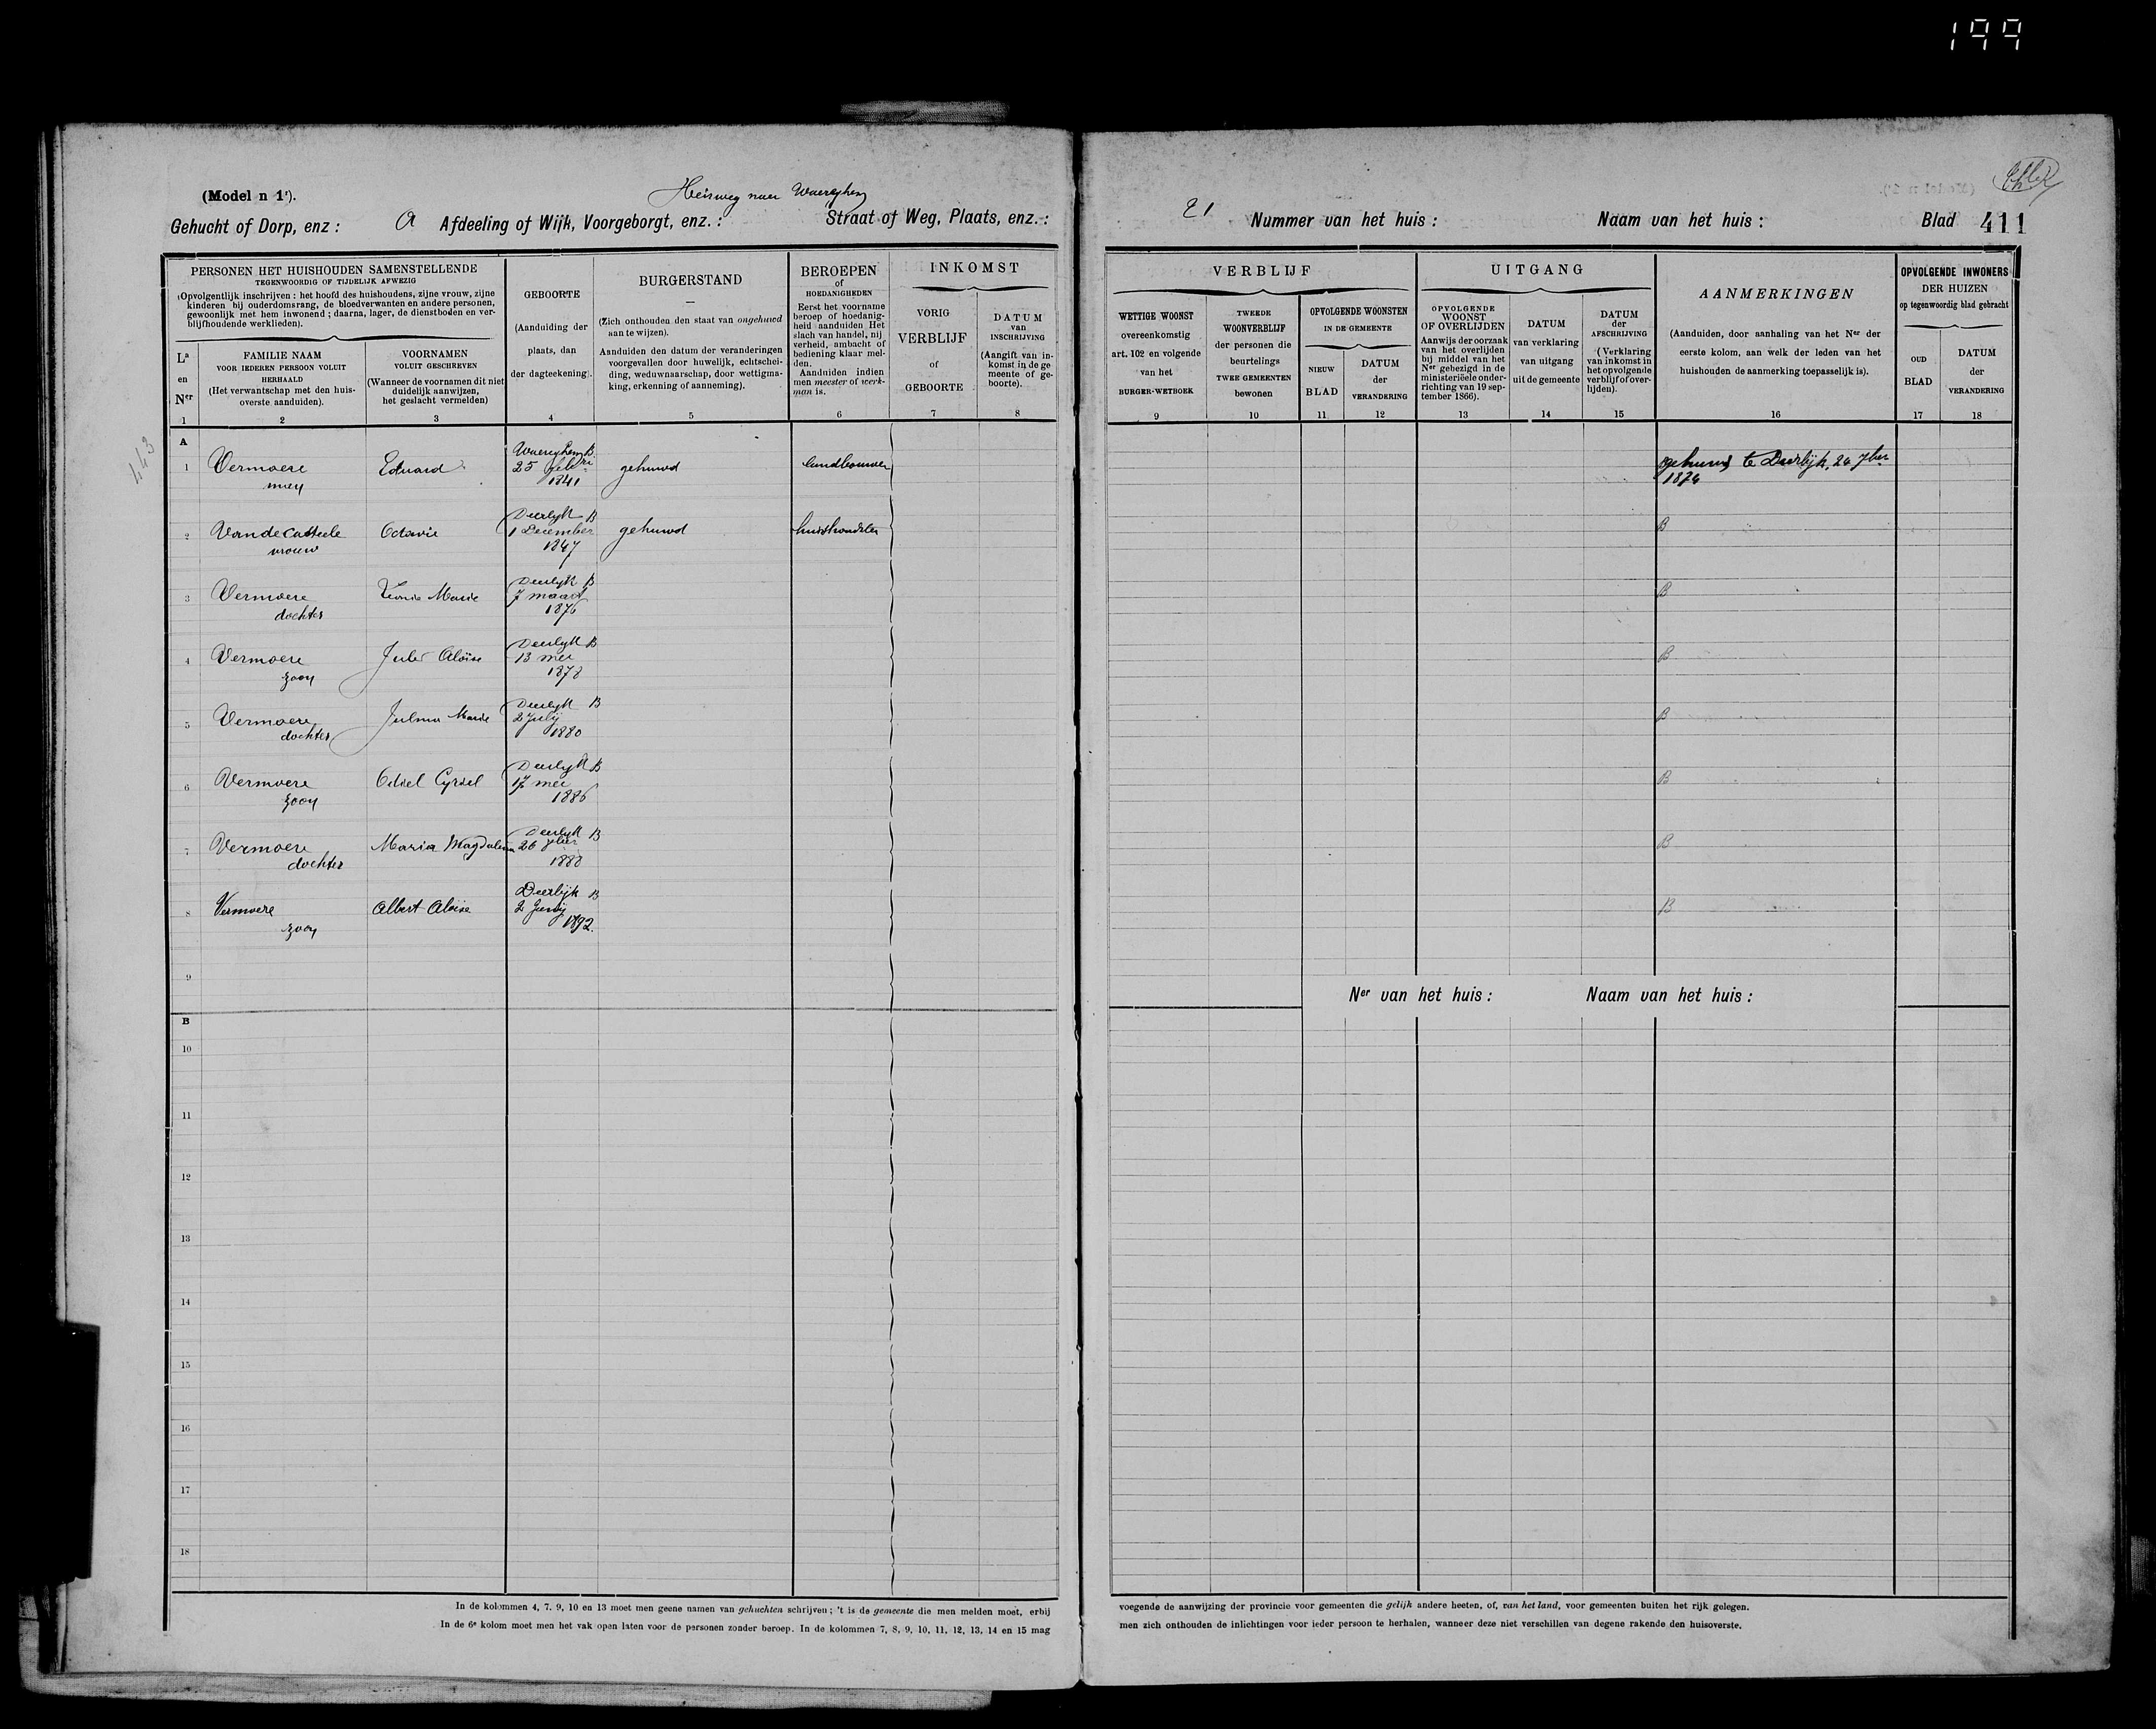 199
(Model n 1r).
Heirweg naar Waereghem
Gehucht of Dorp, enz : A Afdeeling of Wijk, Voorgeborgt, enz. : Straat of Weg, Plaats, enz. :
21 Nummer van het huis : Naam van het huis : Blad 411
PERSONEN HET HUISHOUDEN SAMENSTELLENDE
TEGENWOORDIG OF TIJDELIJK AFWEZIG
(Opvolgentlijk inschrijven : het hoofd des huishoudens, zijne vrouw, zijne
kinderen bij ouderdomsrang, de bloedverwanten en andere personen,
gewoonlijk met hem inwonend ; daarna, lager, de dienstboden en ver-
blijfhoudende werklieden).
La
en
Ner
1
FAMILIE NAAM
VOOR IEDEREN PERSOON VOLUIT
HERHAALD
(Het verwantschap met den huis-
overste aanduiden).
2
VOORNAMEN
VOLUIT GESCHREVEN
(Wanneer de voornamen dit niet
duidelijk aanwijzen,
het geslacht vermelden)
3
GEBOORTE
(Aanduiding der
plaats, dan
der dagteekening).
4
BURGERSTAND
(Zich onthouden den staat van ongehuwd
aan te wijzen).
Aanduiden den datum der veranderingen
voorgevallen door huwelijk, echtschei-
ding, weduwnaarschap, door wettigma-
king, erkenning of aanneming).
5
BEROEPEN
of
HOEDANIGHEDEN
Eerst het voorname
beroep of hoedanig-
heid aanduiden Het
slach van handel, nij
verheid, ambacht of
bediening klaar mel-
den.
Aanduiden indien
men meester of werk-
man is.
6
INKOMST
VORIG
VERBLIJF
of
GEBOORTE
7
DATUM
van
INSCHRIJVING
(Aangift van in-
komst in de ge
meente of ge-
boorte).
8
VERBLIJF
WETTIGE WOONST
overeenkomstig
art. 102 en volgende
van het
BURGER-WETBOEK
9
TWEEDE
WOONVERBLIJF
der personen die
beurtelings
TWEE GEMEENTEN
bewonen
10
OPVOLGENDE WOONSTEN
IN DE GEMEENTE
NIEUW
BLAD
11
DATUM
der
VERANDERING
12
UITGANG
OPVOLGENDE
WOONST
OF OVERLIJDEN
Aanwijs der oorzaak
van het overlijden
bij middel van het
Ner gebezigd in de
ministeriëele onder-
richting van 19 sep-
tember 1866).
13
DATUM
van verklaring
van uitgang
uit de gemeente
14
DATUM
der
AFSCHRIJVING
(Verklaring
van inkomst in
het opvolgende
verblijf of over-
lijden).
15
AANMERKINGEN
(Aanduiden, door aanhaling van het Ner der
eerste kolom, aan welk der leden van het
huishouden de aanmerking toepasselijk is).
16
OPVOLGENDE INWONERS
DER HUIZEN
op tegenwoordig blad gebracht
OUD
BLAD
17
DATUM
der
VERANDERING
18
A
143
1 Vermoere Eduard Waereghem B. gehuwd landbouwer gehuwd te Deerlijk, 26 7ber
man 25 feb
1841 1874
2 Vandecasteele Octavie Deerlyk B gehuwd huishoudster B
vrouw 1 December
1847
3 Vermoere Leonie Marie Deerlyk B B
dochter 7 maart
1876
4 Vermoere Jules Aloïse Deerlyk B B
zoon 13 mei
1878
5 Vermoere Julma Marie Deerlyk B B
dochter 2 July
1880
6 Vermoere Odiel Cyriel Deerlyk B B
zoon 17 mei
1886
7 Vermoere Maria Magdalena Deerlyk B B
dochter 26
1888
8 Vermoere Albert Aloïse Deerlijk B B
zoon 2 Junij
1892.
9
Ner van het huis : Naam van het huis :
B
10
11
12
13
14
15
16
17
18
In de kolommen 4, 7. 9, 10 en 13 moet men geene namen van gehuchten schrijven ; 't is de gemeente die men melden moet, erbij
In de 6e kolom moet men het vak open laten voor de personen zonder beroep. In de kolommen 7, 8, 9, 10, 11, 12, 13, 14 en 15 mag
voegende de aanwijzing der provincie voor gemeenten die gelijk andere heeten, of, van het land, voor gemeenten buiten het rijk gelegen.
men zich onthouden de inlichtingen voor ieder persoon te herhalen, wanneer deze niet verschillen van degene rakende den huisoverste.